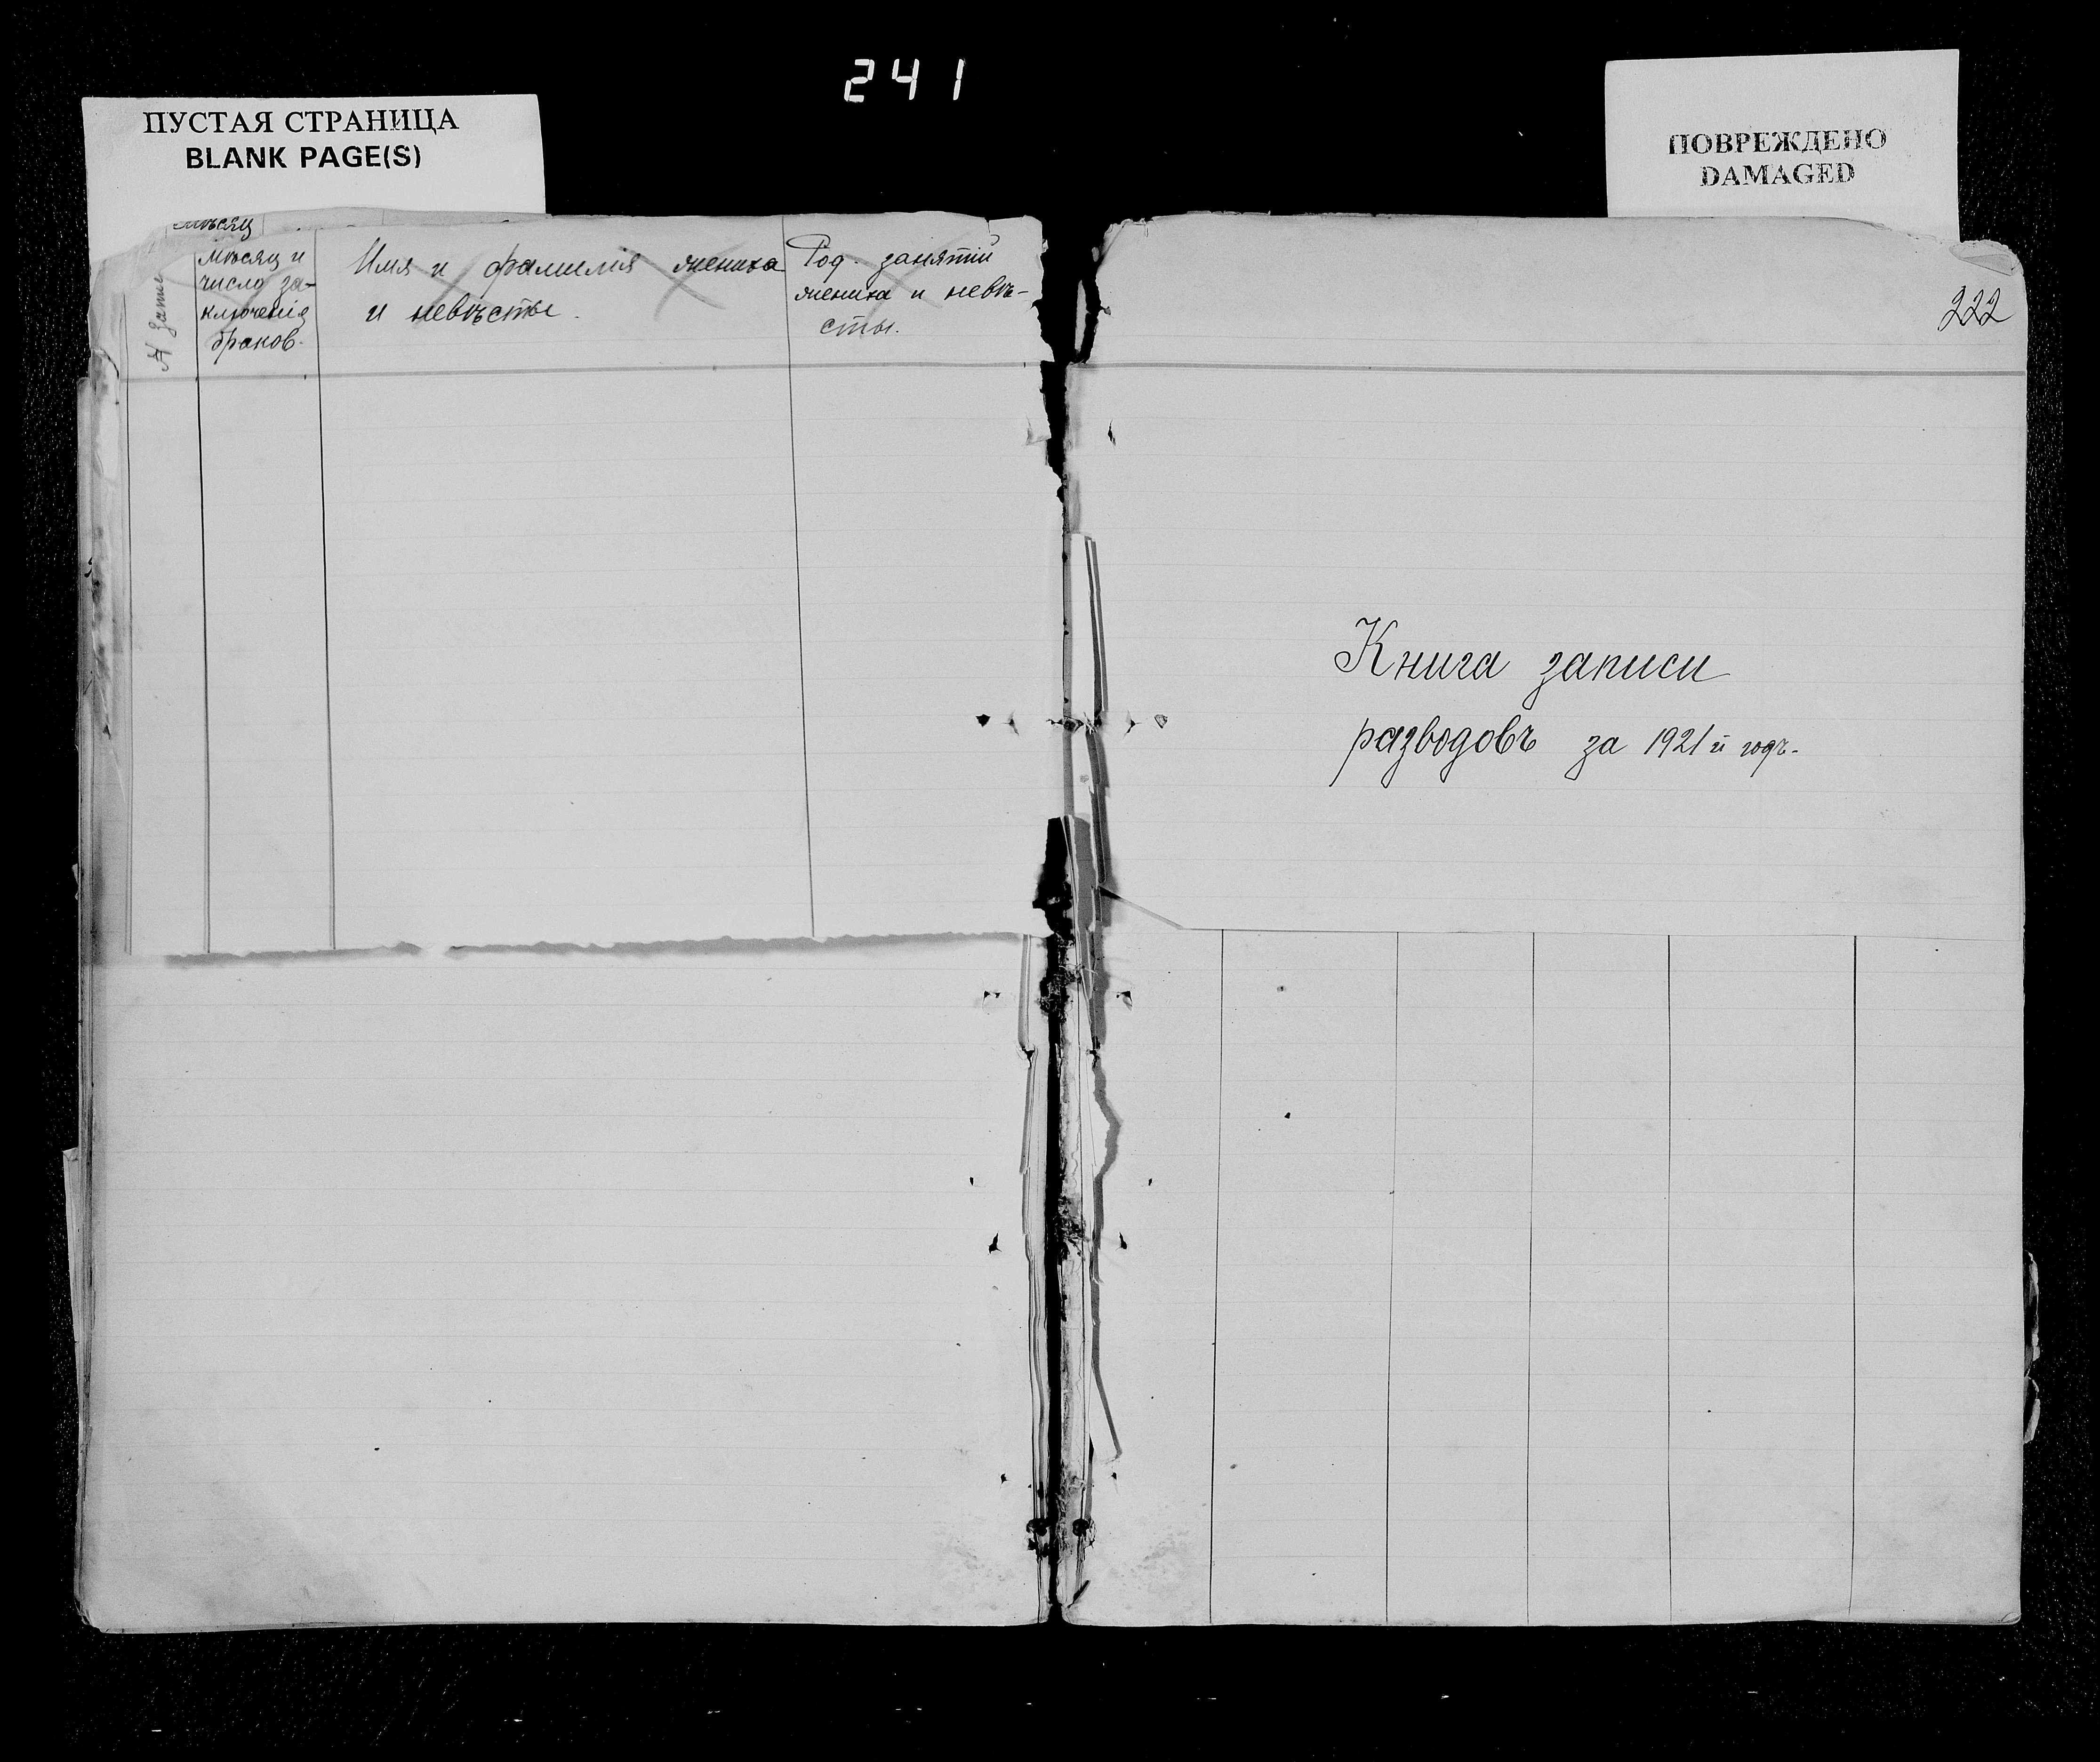 241
ПУСТАЯ СТРАНИЦА
BLANK PAGE(S)
ПОВРЕЖДЕНО
DAMAGED
Мѣсяц
Мѣсяц и
число за-
ключенія
браков.
Имя и фамилія жениха
и невѣсты.
Род. занятій
жениха и невѣ-
сты.
222
Книга записи
разводовъ за 1921й годъ.